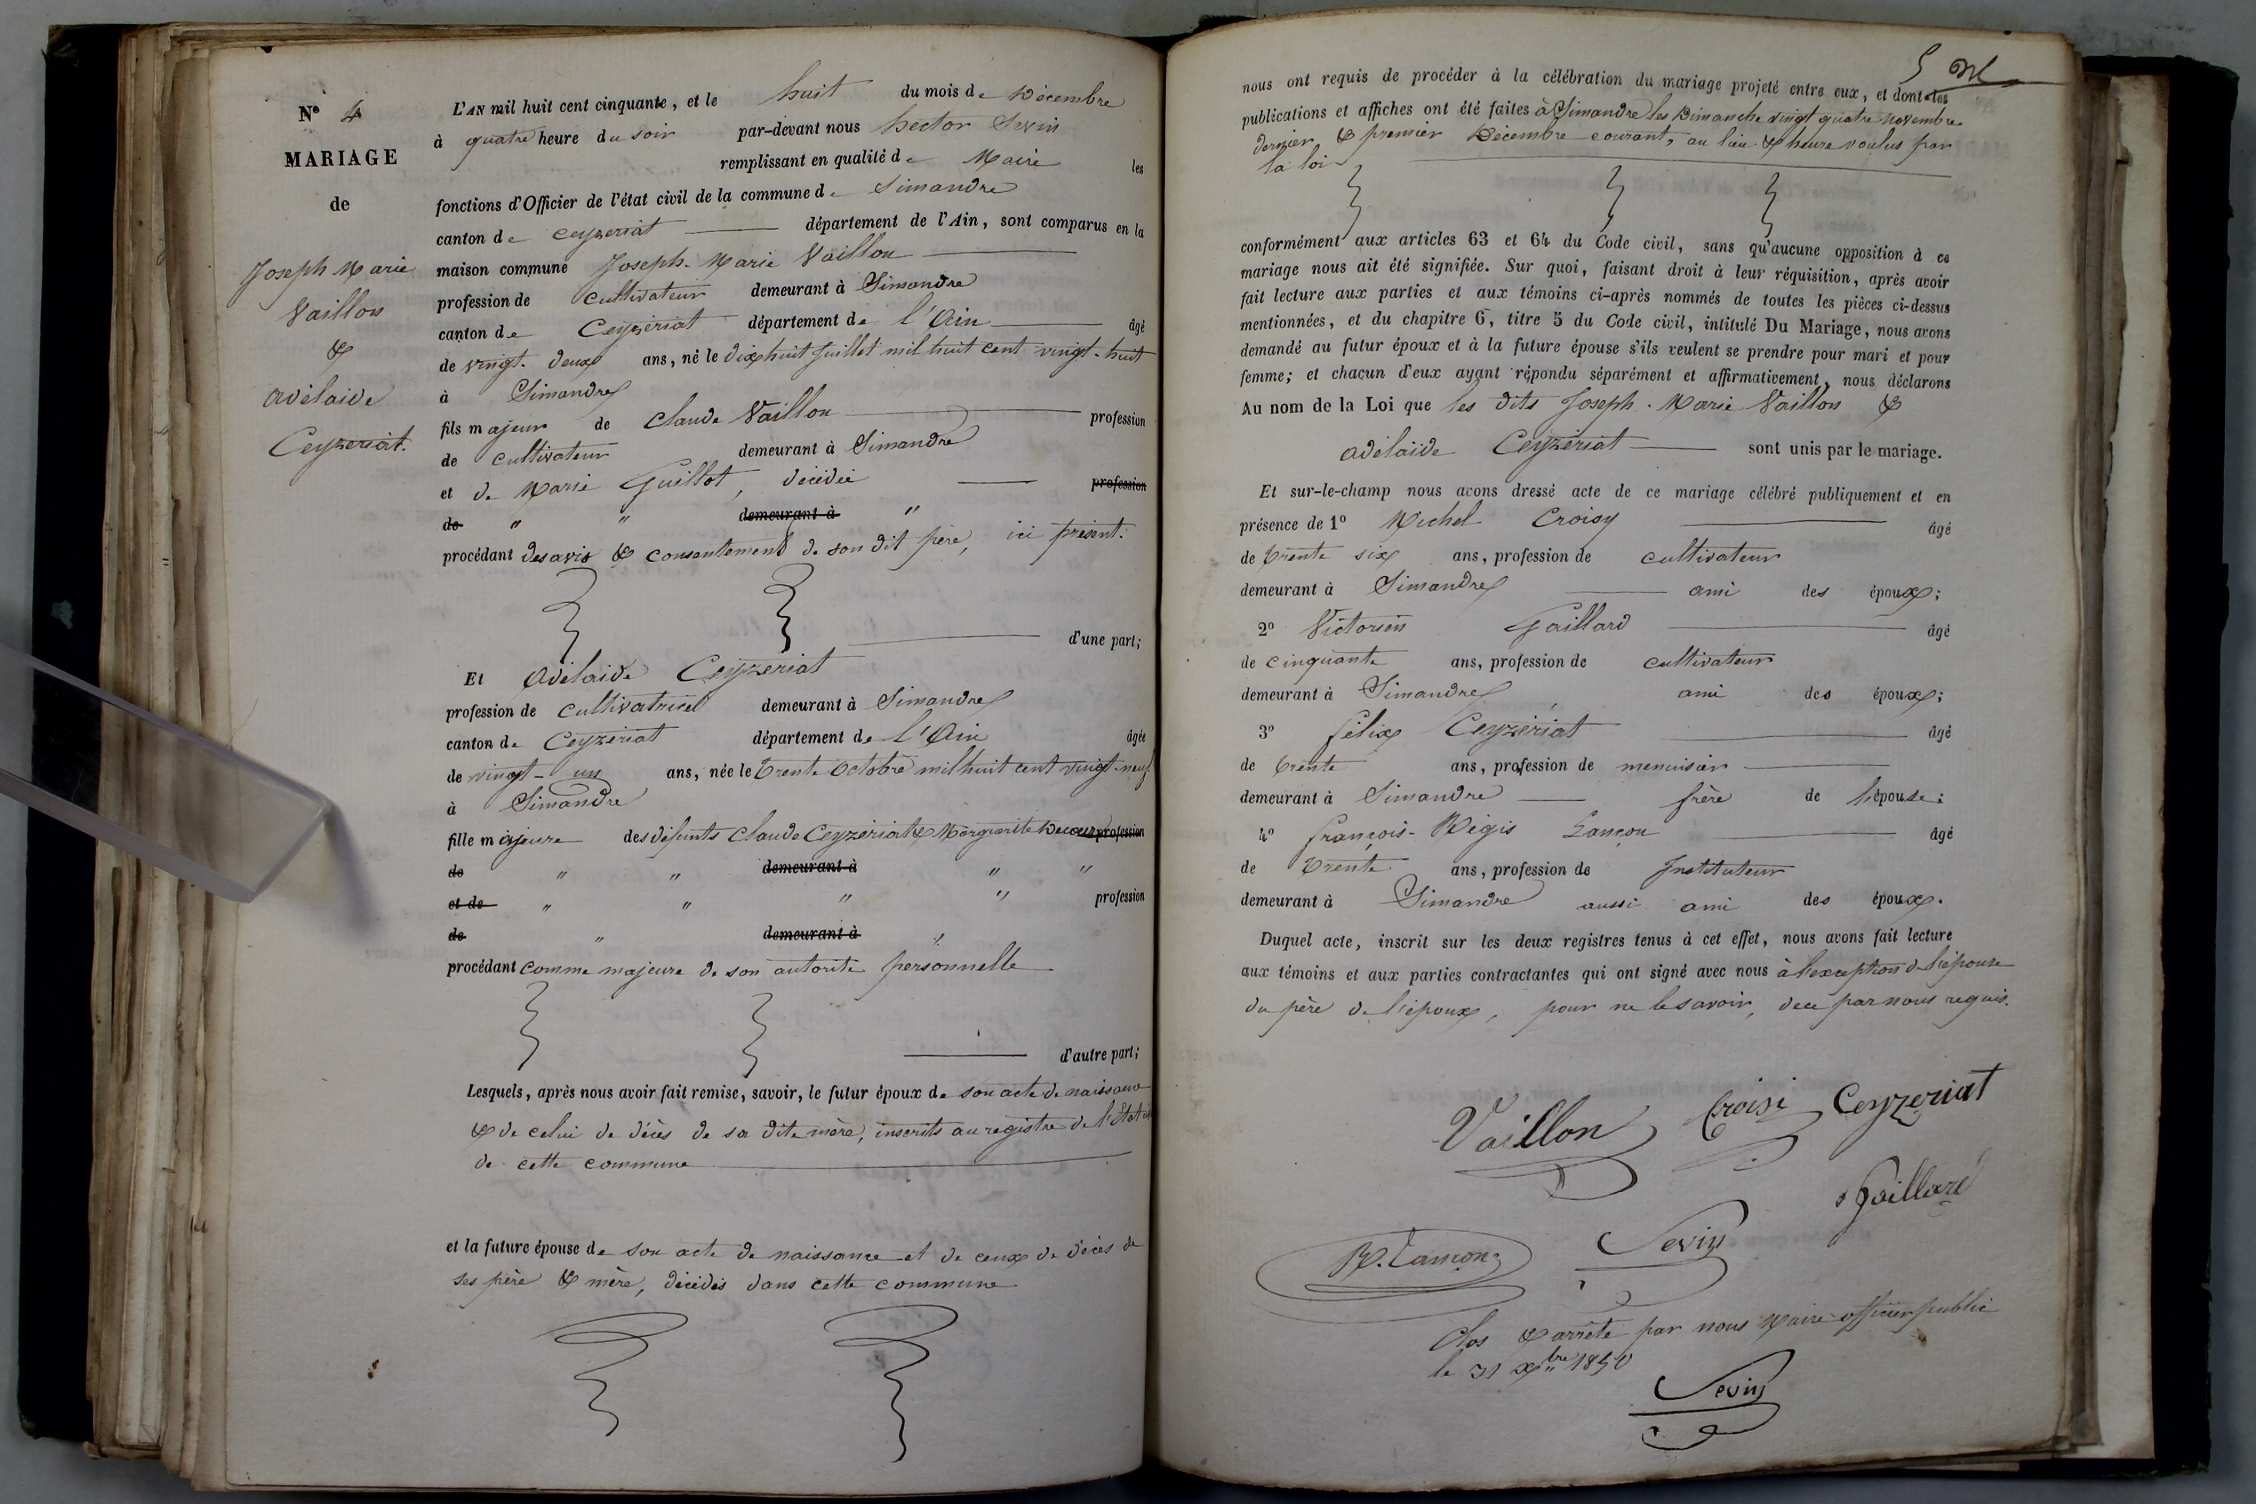 N° 4
MARIAGE
de
Joseph Marie
Vaillon
&
Adélaide
Ceyzeriat.
L'AN mil huit cent cinquante, et le huit du mois de Décembre
à quatre heure du soir par-devant nous hector Sevin
remplissant en qualité de Maire les
fonctions d'Officier de l'état civil de la commune de Simandre
canton de Ceyzeriat département de l'Ain, sont comparus en la
maison commune Joseph-Marie Vaillon
profession de cultivateur demeurant à Simandre
canton de Ceyzériat département de l'Ain âgé
de vingt-deux ans, né le dix huit Juillet mil huit cent vingt-huit
à Simandre
fils majeur de Claude Vaillon profession
de cultivateur demeurant à Simandre
et de Marie Guillot, décédée profession
de " " demeurant à "
procédant des avis & consentement de son dit père, ici présent.
d'une part;
Et Adélaide Ceyzeriat
profession de cultivatrice demeurant à Simandre
canton de Ceyzériat département de l'Ain âgée
de vingt-un ans, née le trente Octobre mil huit cent vingt-neuf
à Simandre
fille majeure des défunts Claude Ceyzériat & Marguerite profession
de " " demeurant à " "
et de " " " " profession
de " demeurant à "
procédant comme majeure de son autorité personnelle
d'autre part;
Lesquels, après nous avoir fait remise, savoir, le futur époux de son acte de naissance
& de celui de décès de sa dite mère, inscrits au registre de l'État
de cette commune
et la future épouse de son acte de naissance et de ceux de décès de
ses père & mère, décédés dans cette commune
nous ont requis de procéder à la célébration du mariage projeté entre eux, et dont les
publications et affiches ont été faites à Simandre les Dimanche vingt quatre novembre
dernier & premier Décembre courant, au lieu & heure voulus par
la loi
conformément aux articles 63 et 64 du Code civil, sans qu'aucune opposition à ce
mariage nous ait été signifiée. Sur quoi, faisant droit à leur réquisition, après avoir
fait lecture aux parties et aux témoins ci-après nommés de toutes les pièces ci-dessus
mentionnées, et du chapitre 6, titre 5 du Code civil, intitulé Du Mariage, nous avons
demandé au futur époux et à la future épouse s'ils veulent se prendre pour mari et pour
femme; et chacun d'eux ayant répondu séparément et affirmativement, nous déclarons
Au nom de la Loi que les dits Joseph-Marie Vaillon &
Adélaïde Ceyzériat sont unis par le mariage.
Et sur-le-champ nous avons dressé acte de ce mariage célébré publiquement et en
présence de 1° Michel Croisy âgé
de trente six ans, profession de cultivateur
demeurant à Simandre ami des époux;
2° Victorien Gaillard âgé
de cinquante ans, profession de cultivateur
demeurant à Simandre ami des époux;
3° félix Ceyzériat âgé
de trente ans, profession de menuisier
demeurant à Simandre frère de l'épouse;
4° françois-Régis Lançon âgé
de trente ans, profession de Instituteur
demeurant à Simandre aussi ami des époux.
Duquel acte, inscrit sur les deux registres tenus à cet effet, nous avons fait lecture
aux témoins et aux parties contractantes qui ont signé avec nous à l'exception de l'épouse
du père de l'époux, pour ne le savoir, de ce par nous requis.
Vaillon Croisi Ceyzeriat
Gaillard
R. Lançon Sevin
Clos & arrêté par nous Maire officier public
le 31 Xbre 1850
Sevin